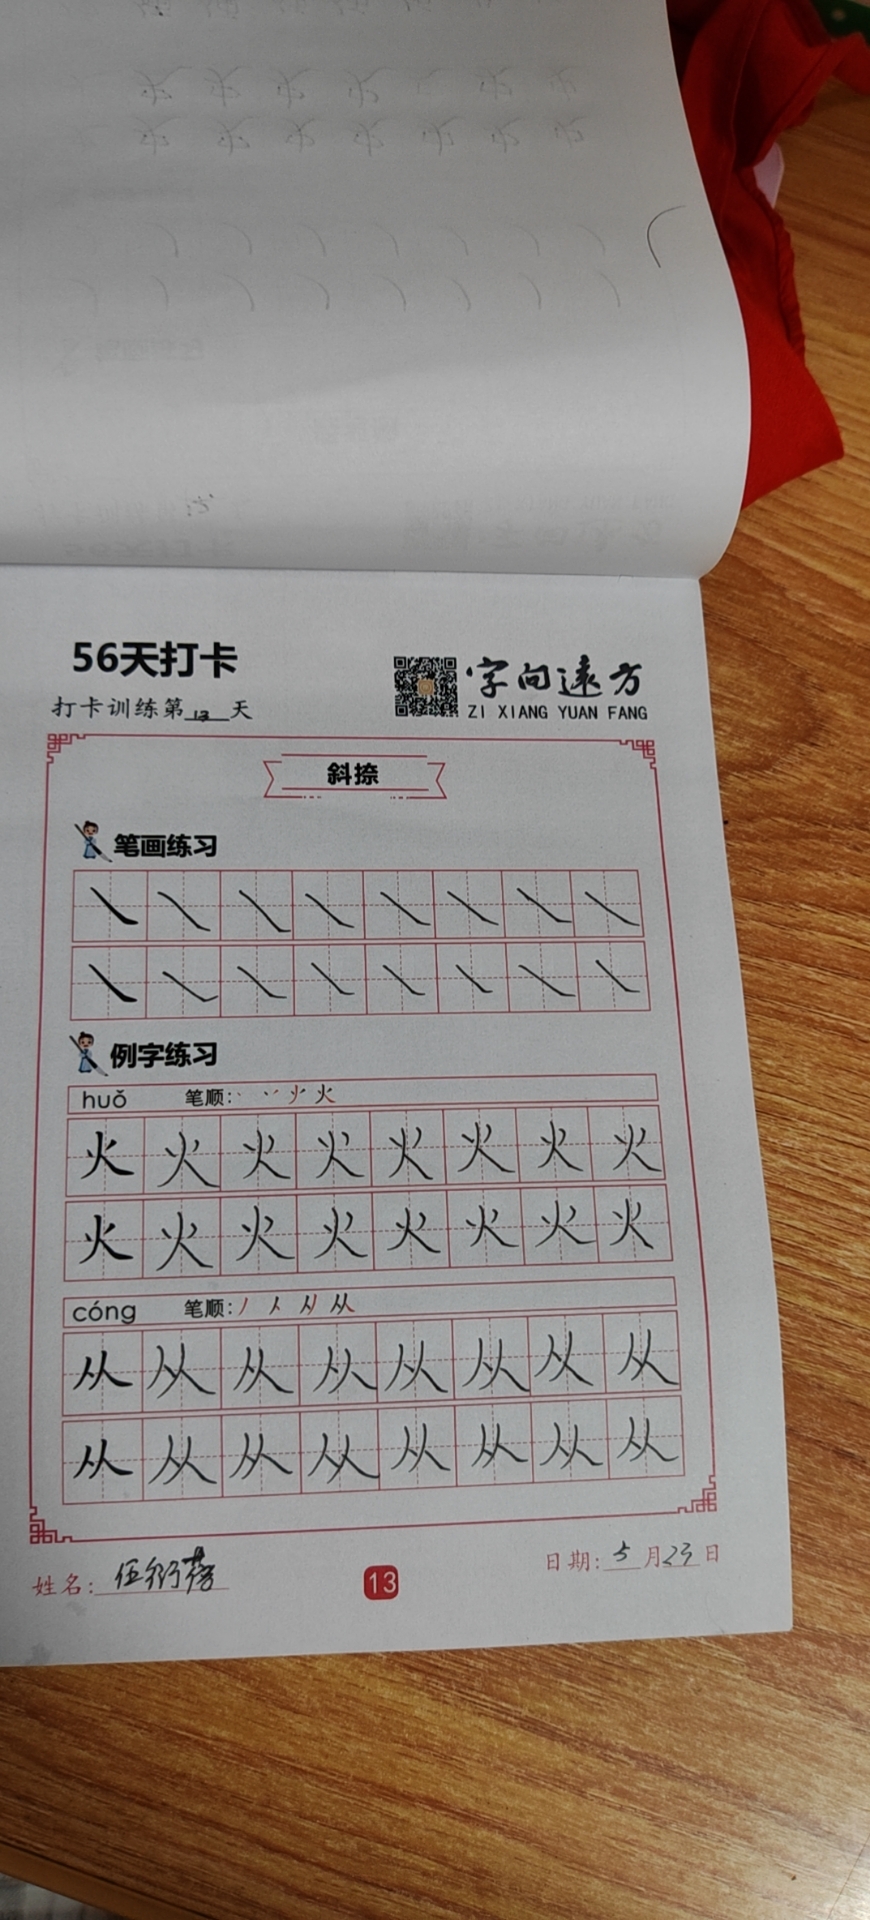 56天打卡
字向远方
ZI XIANG YUAN FANG
打卡训练第13天
斜捺
笔画练习
例字练习
huǒ 笔顺: 火
火火火火火火火火
火火火火火火火火
cóng 笔顺: 丿 人 从
从从从从从从从从
从从从从从从从从
姓名:伍衍
13
日期:5月23日